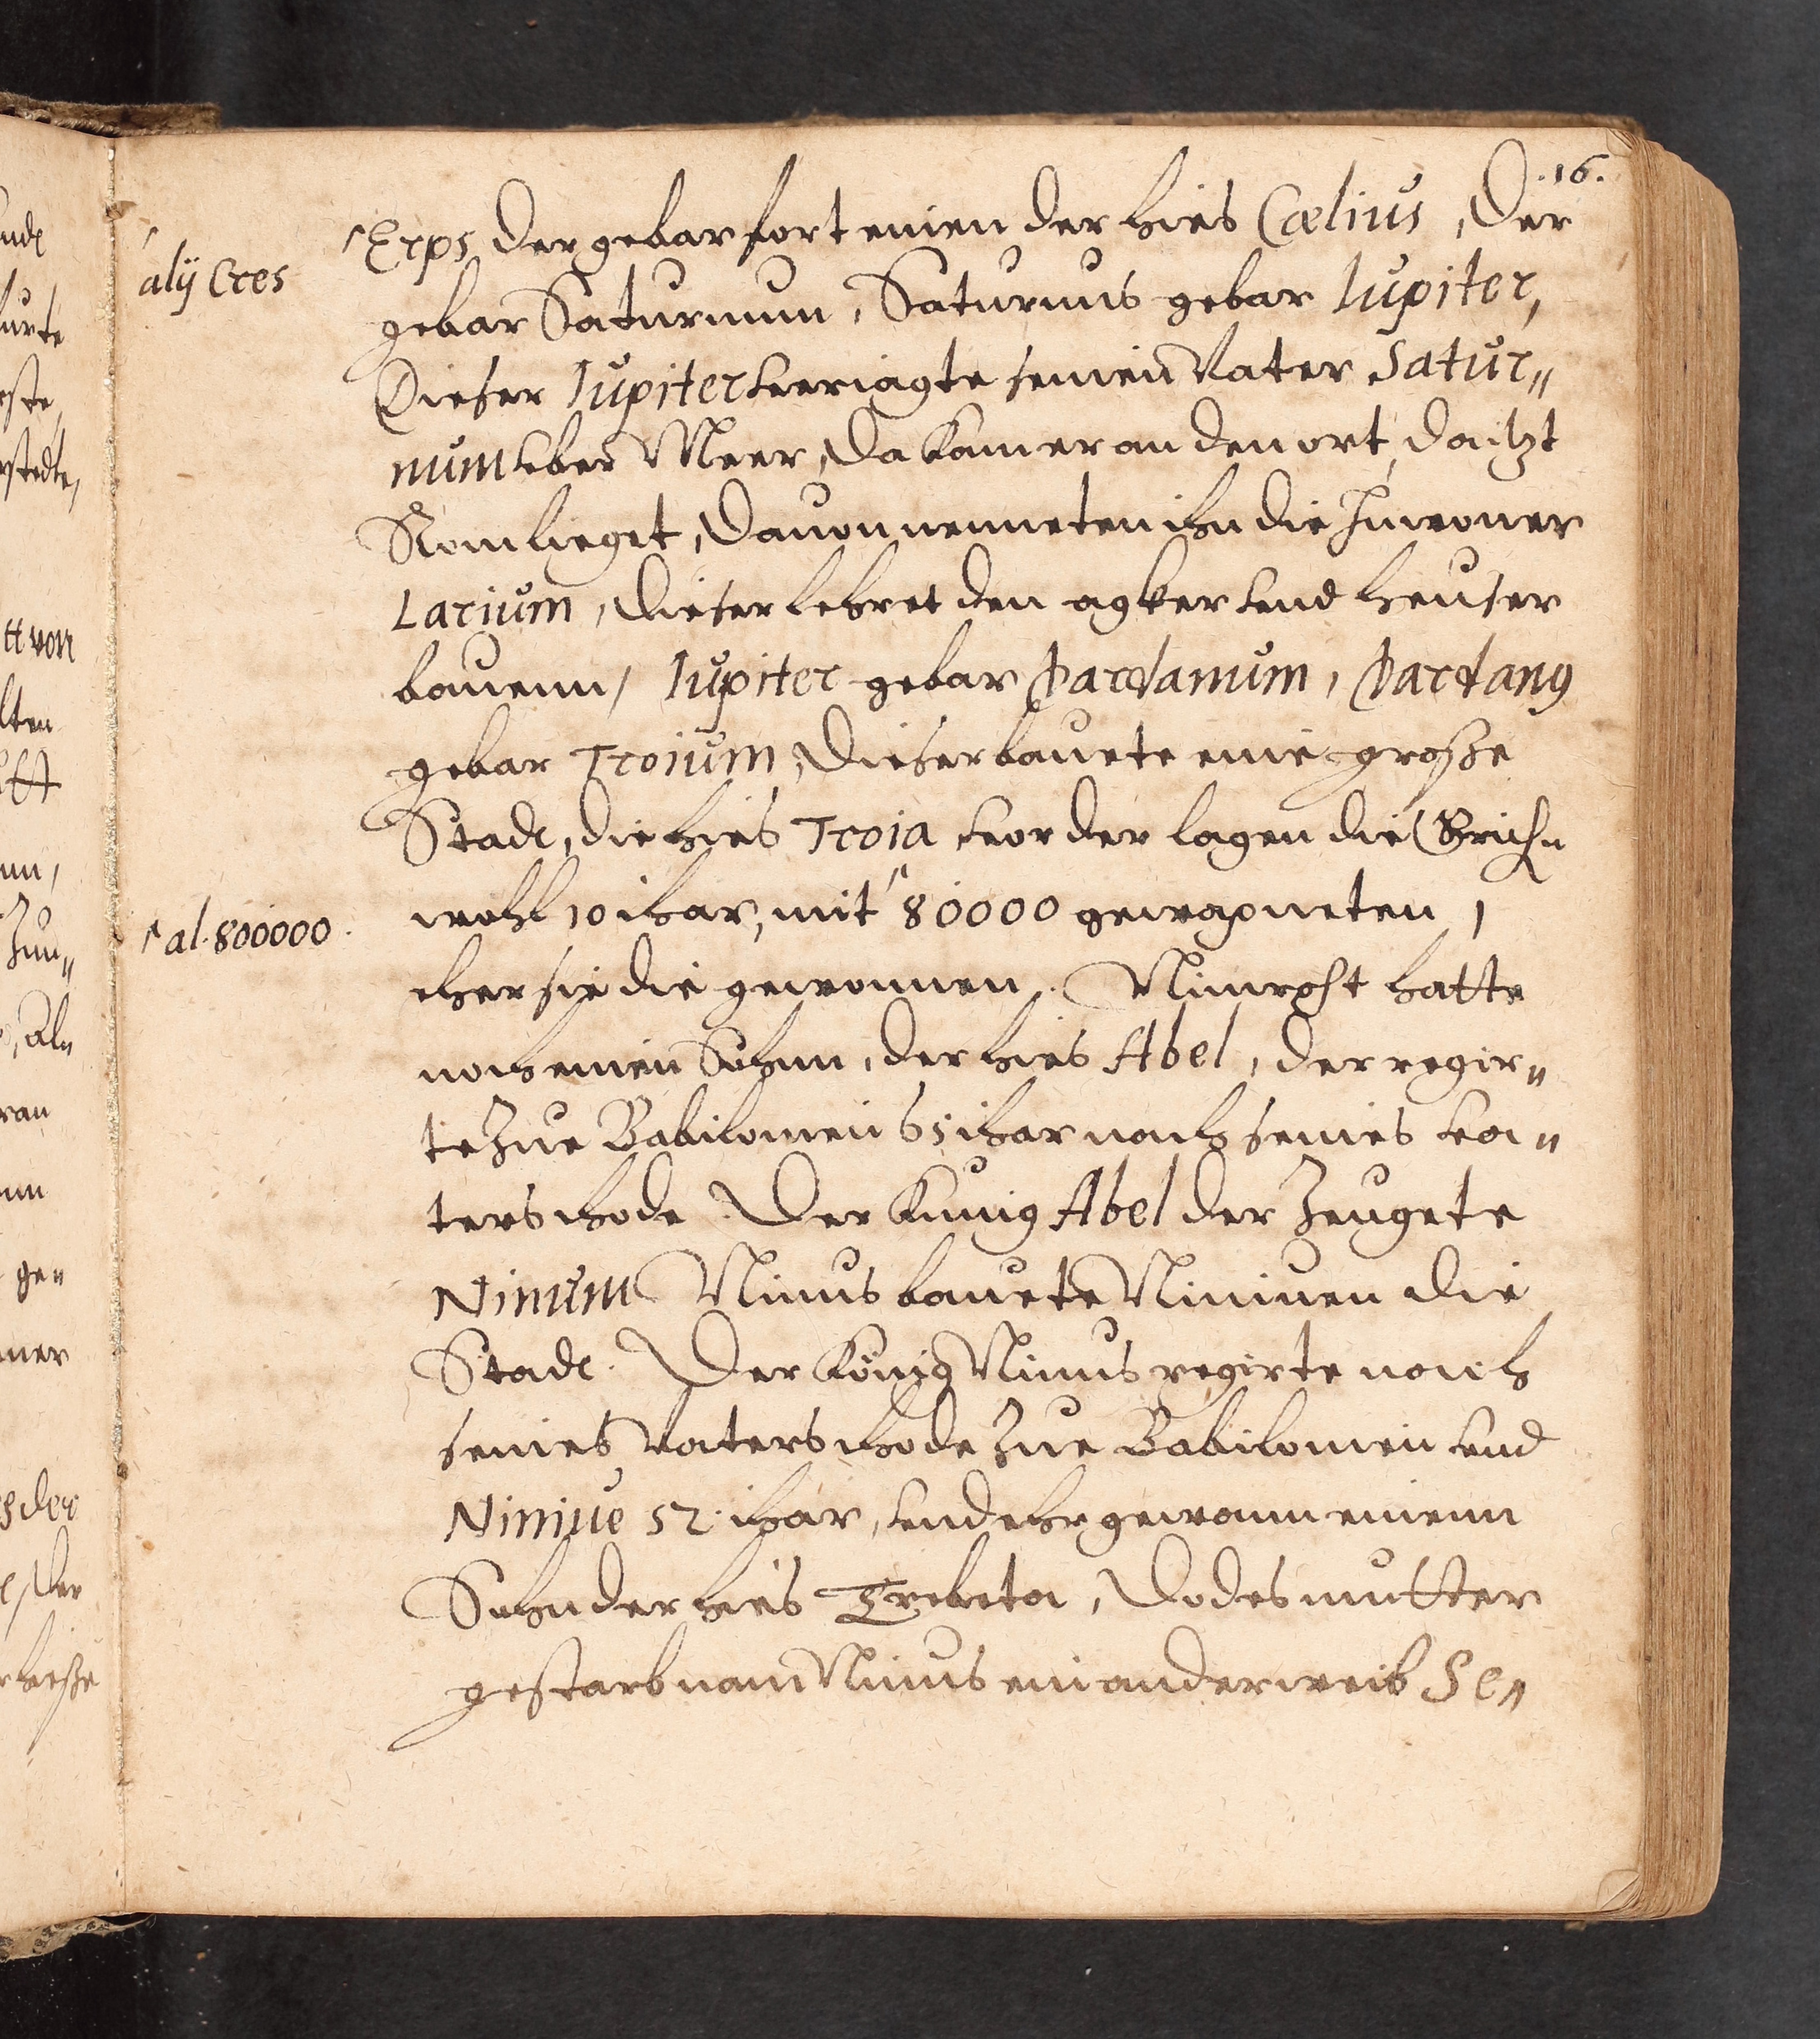 .16.
Erps der gebar fort einen der hies Cœlius, Der
alij Cres
gebar Saturnum, Saturnus gebar Iupiter,
Dieser Iupiter veriagte seinen Vater Satur„
num vber Meer, da kam er an den ort, da itzt
Rom lieget, Dauon nenneten ihn die Inwoner
Latium, dieser lehret den agker vnd heuser
bauenn, Iupiter gebar Dardanum, Dardanus
gebar Troium, Dieser bauete eine große
Stadt, die hies Troia vor der lagen die Grichn
wohl 10 ihar, mit 80000 gewapneten,
al. 800000.
eher sie die gewonnen. Nimroht hatte
noch einen Sohnn, der hies Abel, der regir„
te zue Babilonien 65 ihar nach seines va„
ters thode. Der Kunig Abel der zeugete
Ninum Ninus bauete Niniuen die
Stadt. Der König Ninus regirte nach
seines Vaters thode zue Babilonien vnd
Niniue 52. ihar, vnd ehr gewann einenn
Sohn der hies Trebeta, Do des mutter
gestarb nam Ninus ein ander weib Se„